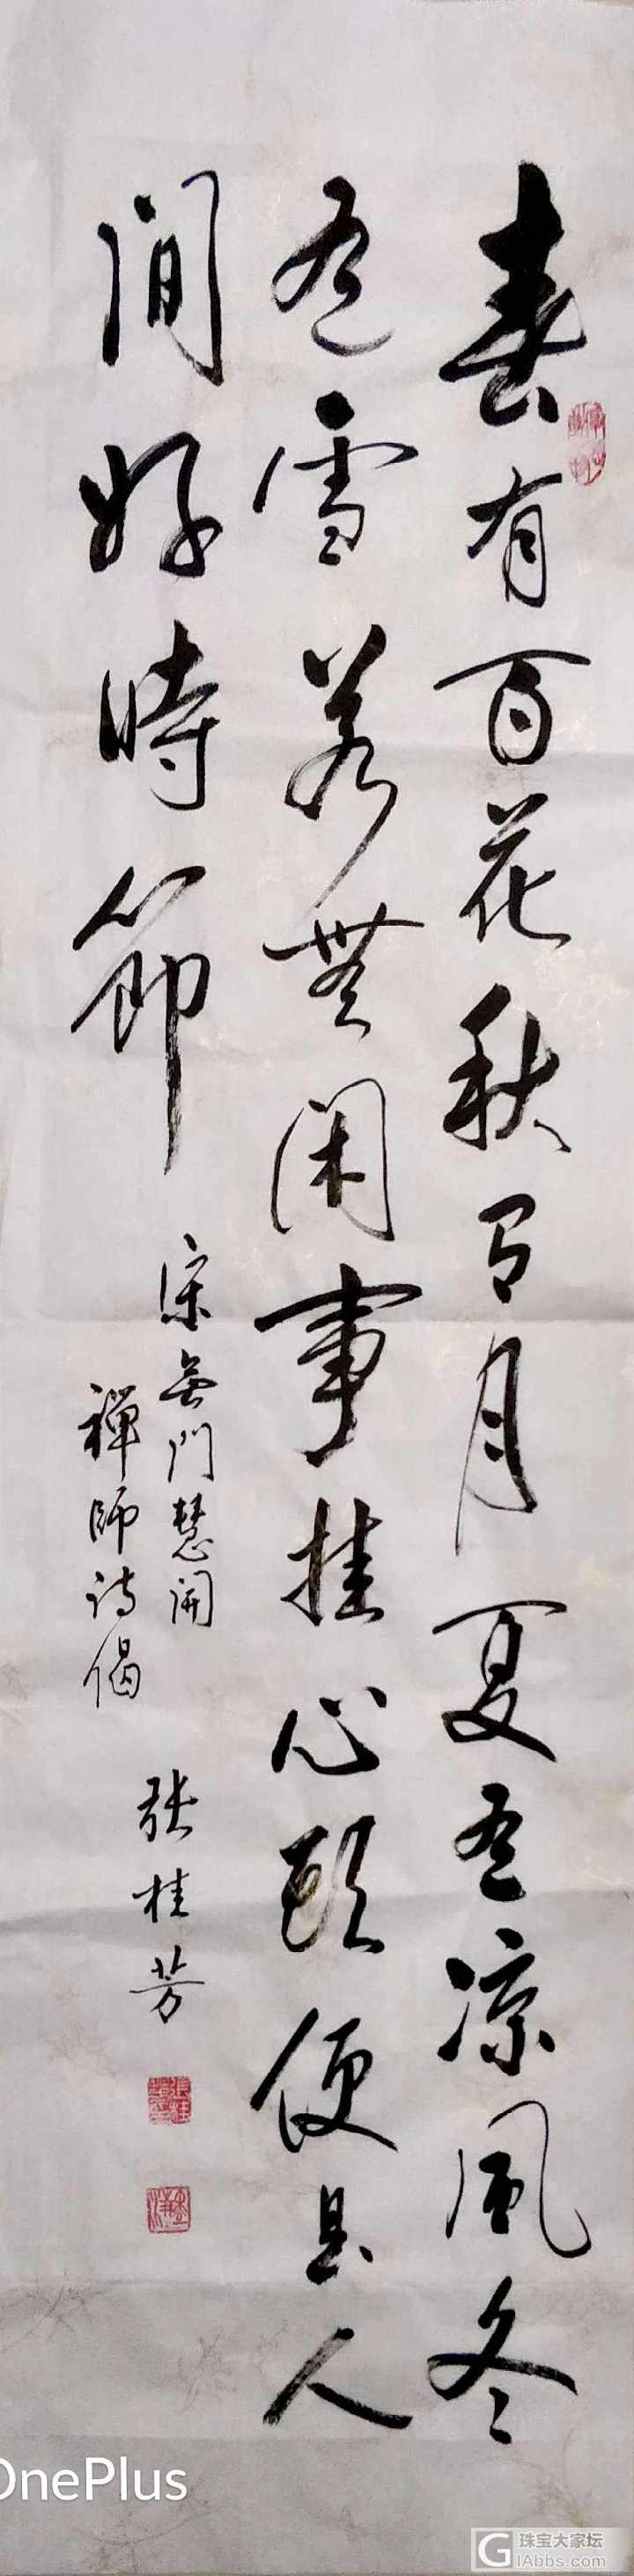 春有百花秋有月夏有凉風冬
有雪若無闲事挂心頭便是人
间好時節
宋無門慧開
禅師诗偈
张桂芳
OnePlus
珠宝大家坛
IAbbs.com